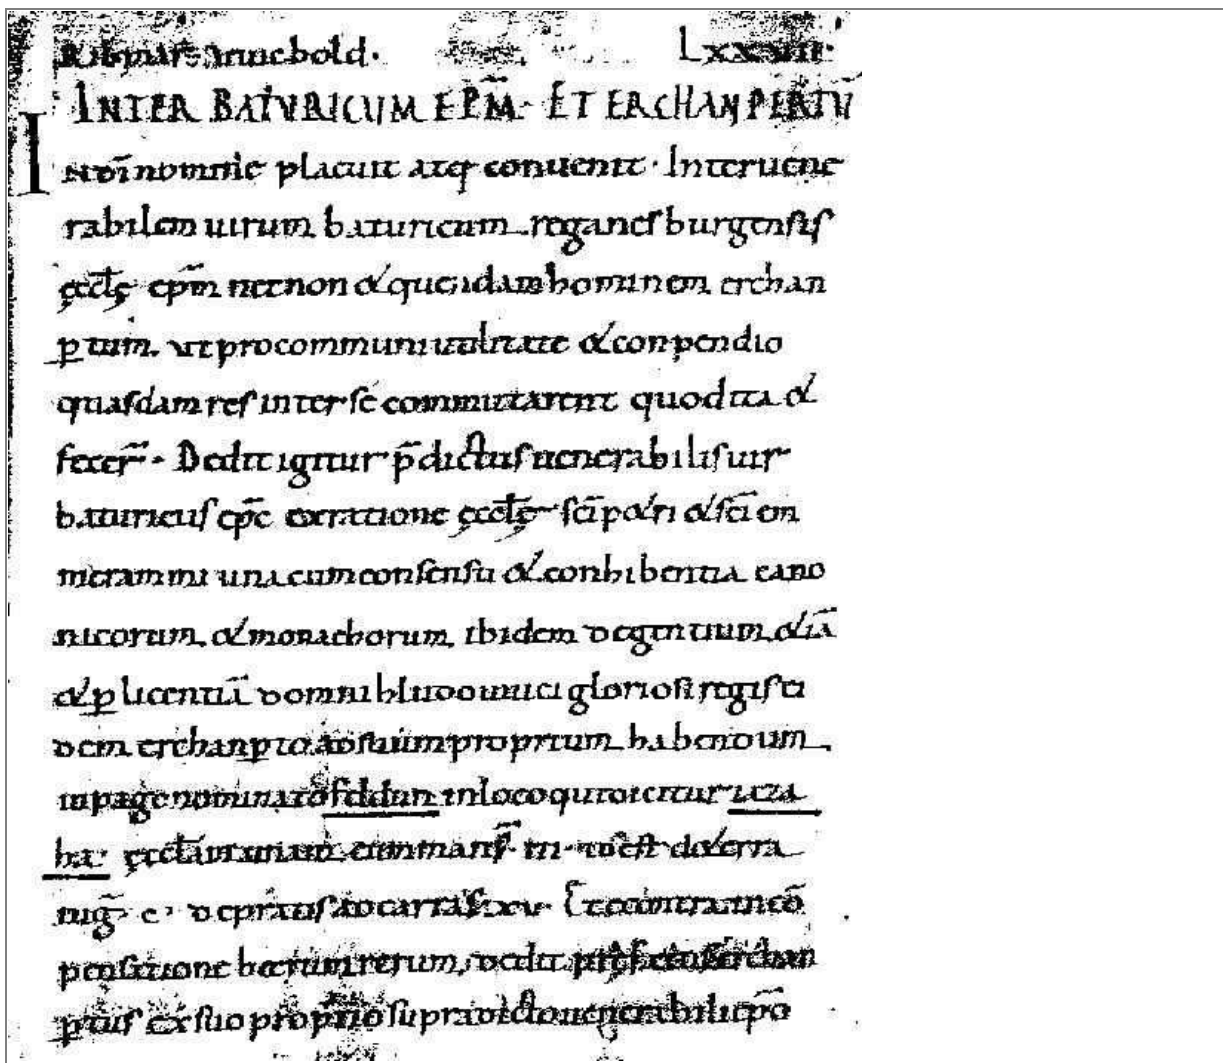 Inter Baturicum epm. Et Erchanpertu
In dī nomine placuit atq; conuenit. Inter uene
rabilem uirum baturicum reganesburgensis
ęcclę epm necnon & quendam hominem erchan
ptum. ut pro communi utilitate & conpendio
quasdam res inter se commutarent quod ita &
fecer̄. Dedit igitur p̄dictus uenerabilis uir
baturicus ep̄c ex ratione ęcclę sc̄i p&ri & sc̄i em
merammi una cum consensu & conhibentia cano
nicorum & monachorum ibidem degentium & iā
& p licentiā domni hludouuici gloriosi regis ei
dem erchanpto ad suum proprium habendum
in pago nominato filddun in loco qui dicitur uza
ha ęccłam unam cum mans̄ III id est de terra
iug̃ c. de pratis ad carras xv. Et econtra in cō
pensatione harum rerum, dedit erchan
ptus ex suo proprio supradicto uenerabili ep̄o